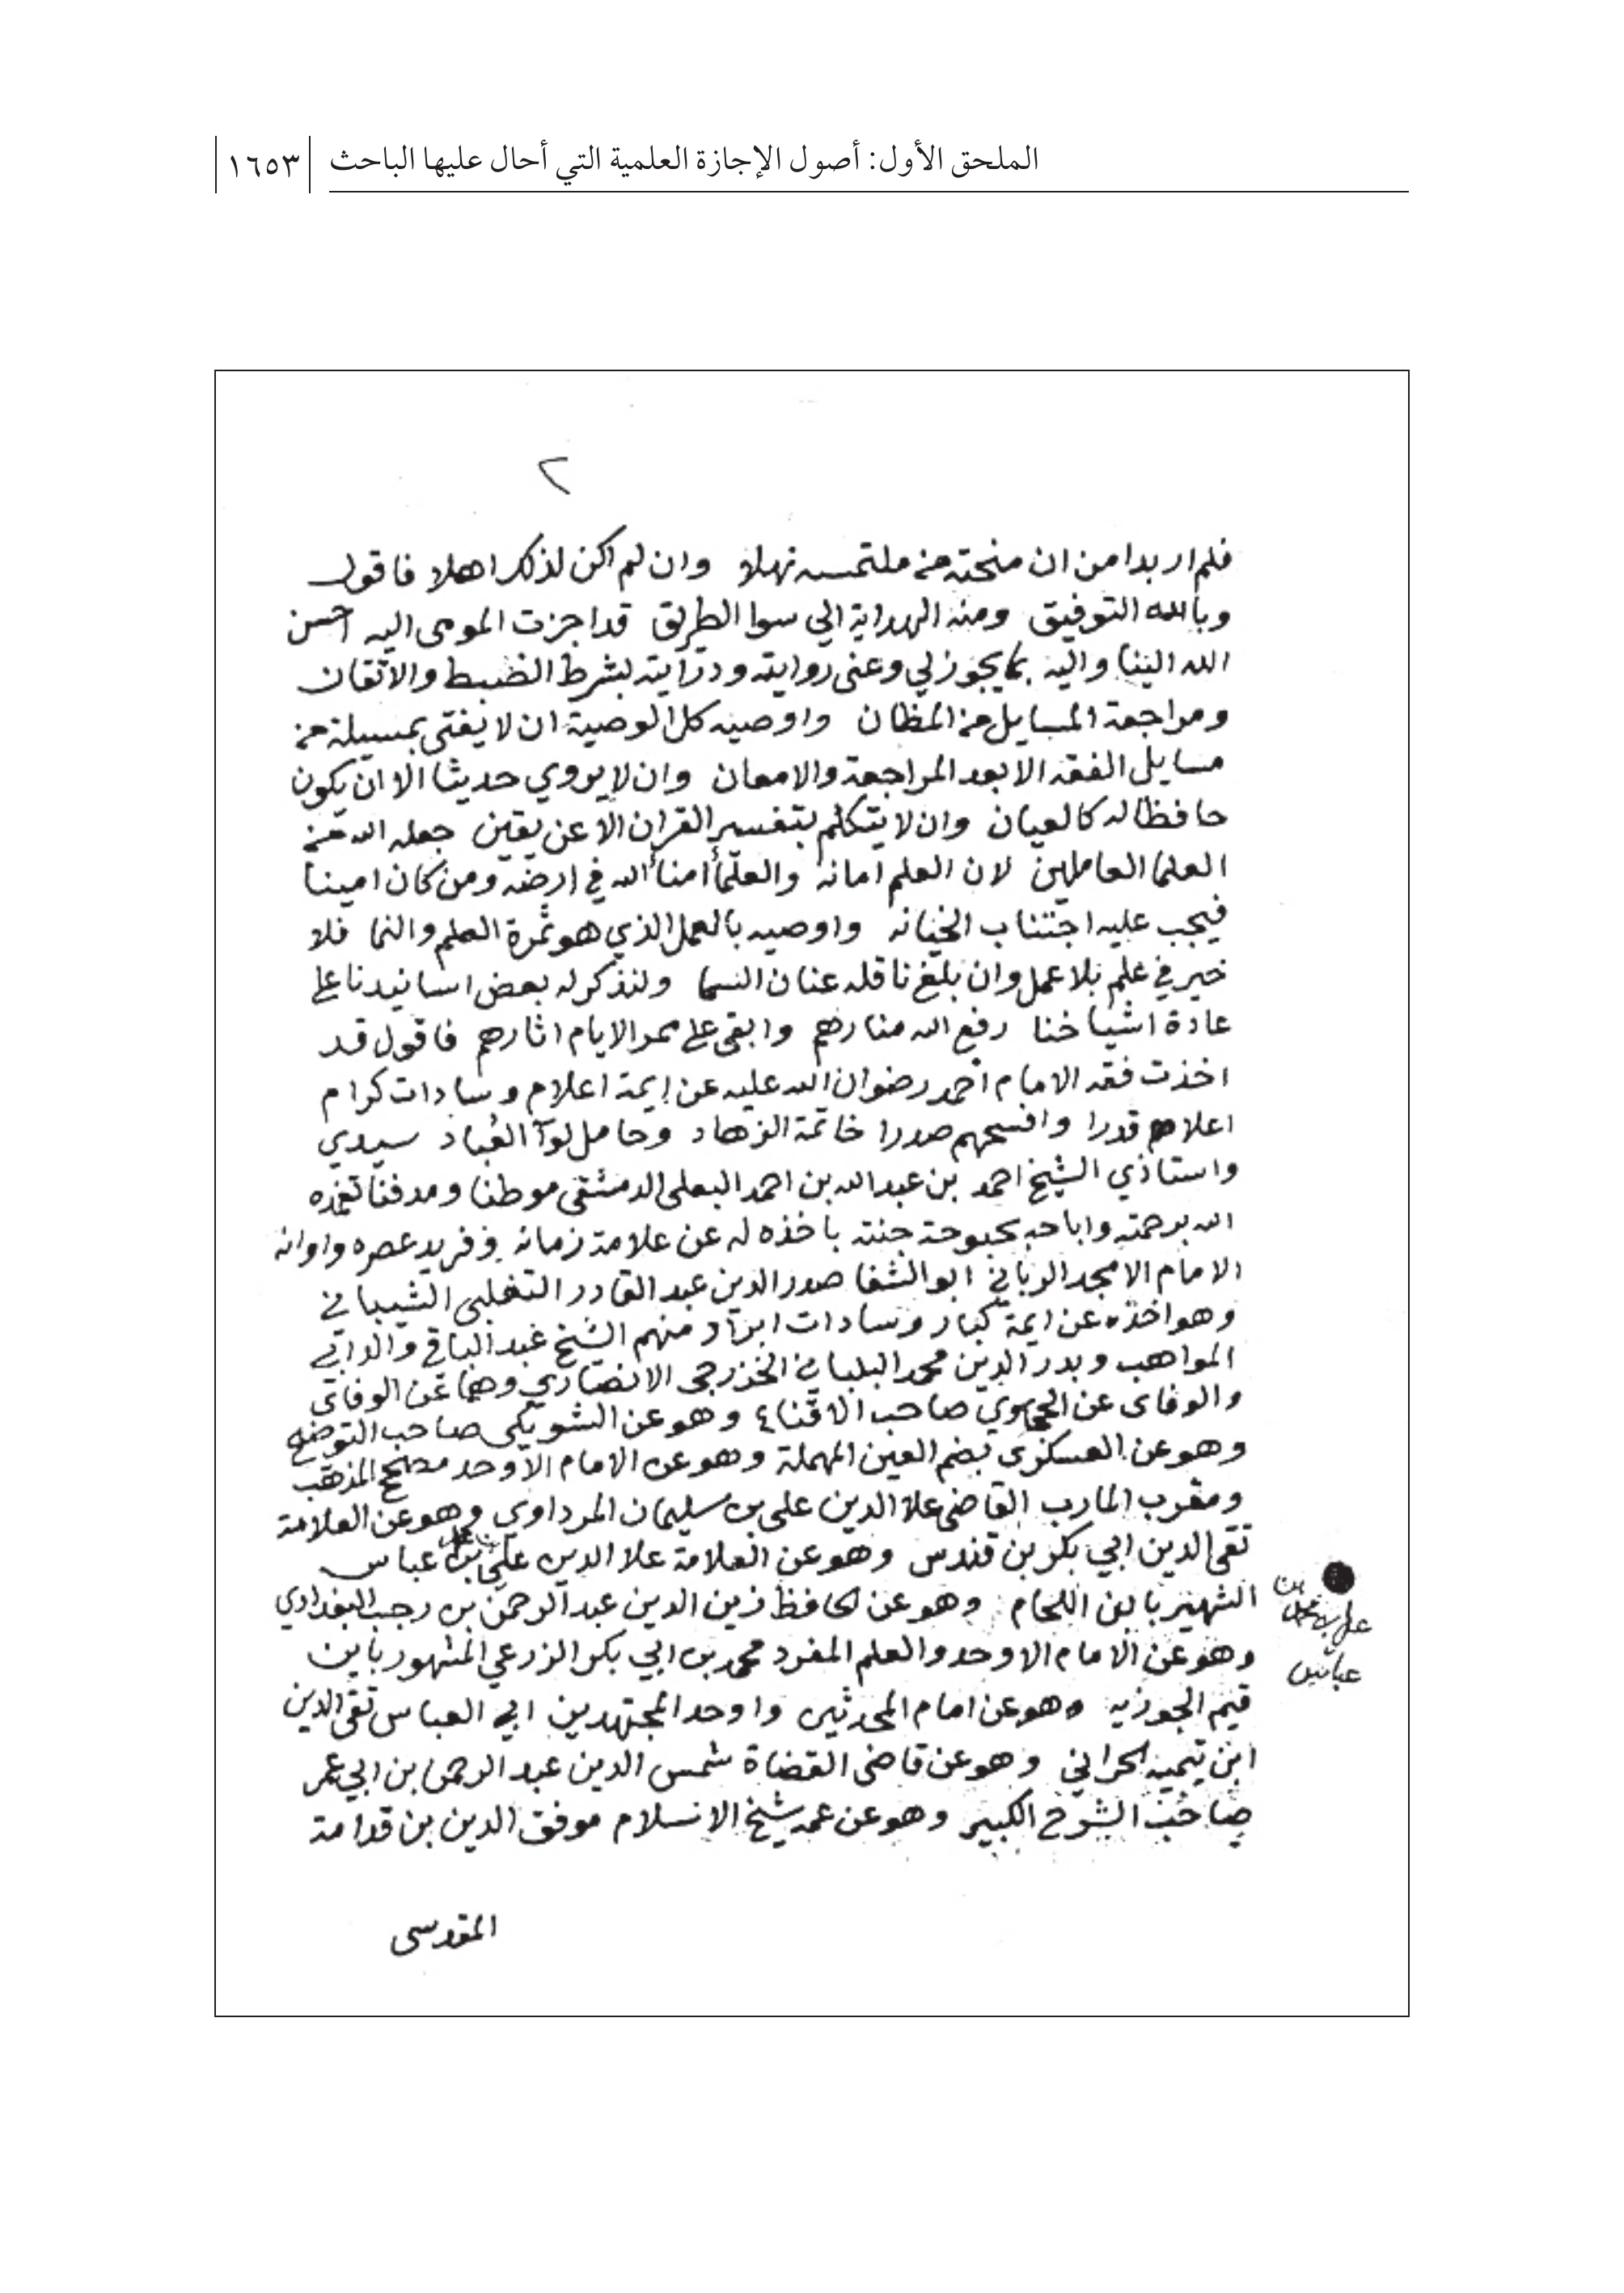 الملحق الأول: أصول الإجازة العلمية التي أحال عليها الباحث ١٦٥٣
٢
فلم ار بدا من ان منحته من ملتمسه نهلا وان لم اكن لذلك اهلا فاقول
وبالله التوفيق ومنه الهداية الي سوا الطريق قد اجزت المومى اليه احسن
الله الينا واليه بما يجوز لي وعنى روايته ودرايته بشرط الضبط والاتقان
ومراجعة المسايل من المظان واوصيه كل الوصية ان لا يفتى بمسيلة من
مسايل الفقه الا بعد المراجعة والامعان وان لا يروي حديثا الا ان يكون
حافظا له كالعيان وان لا يتكلم بتفسير القران الا عن يقين جعله الله من
العلما العاملين لان العلم امانه والعلمأ امنأ الله في ارضه ومن كان امينا
فيجب عليه اجتناب الخيانه واوصيه بالعمل الذي هو ثمرة العلم والنما فلا
خير في علم بلا عمل وان بلغ ناقله عنان السما ولنذكر له بعض اسانيدنا على
عادة اشياخنا رفع الله منارهم وابقى على ممر الايام اثارهم فاقول قد
اخذت فقه الامام احمد رضوان الله عليه عن ايمة اعلام وسادات كرام
اعلاهم قدرا وافسحهم صدرا خاتمة الزهاد وحامل لوآ العُباد سيدي
واستاذي الشيخ احمد بن عبد الله بن احمد البعلى الدمشقى موطنا ومدفنا تغمده
الله برحمته واباحه بحبوحة جنته باخذه له عن علامة زمانه وفريد عصره واوانه
الامام الامجد الرباني ابو الشفا صدر الدين عبد القادر التغلبى الشيباني
وهو اخذه عن ايمة كبار وسادات ابرار منهم الشيخ عبد الباقي والد ابي
المواهب وبدر الدين محمد البلباني الخزرجى الانصاري وهما عن الوفاى
والوفاى عن الحجاوي صاحب الاقناع وهو عن الشويكى صاحب التوضيح
وهو عن العسكرى بضم العين المهملة وهو عن الامام الاوحد مصحح المذهب
ومقرب المارب القاضى علا الدين على بن سليمان المرداوى وهو عن العلامة
تقى الدين ابي بكر بن قندس وهو عن العلامة علا الدين علي بن عباس
الشهير بابن اللحام وهو عن الحافظ زين الدين عبد الرحمن بن رجب البغدادي
وهو عن الامام الاوحد والعلم المفرد محمد بن ابي بكر الزرعي المشهور باين
قيم الجوزيه وهو عن امام المحدثين واوحد المجتهدين ابي العباس تقى الدين
ابن تيميه الحراني وهو عن قاضى القضاة شمس الدين عبد الرحمن بن ابي عمر
صاحب الشرح الكبير وهو عن عمه شيخ الاسلام موفق الدين بن قدامة
بن
علي بن محمد
عباس
المقدسى